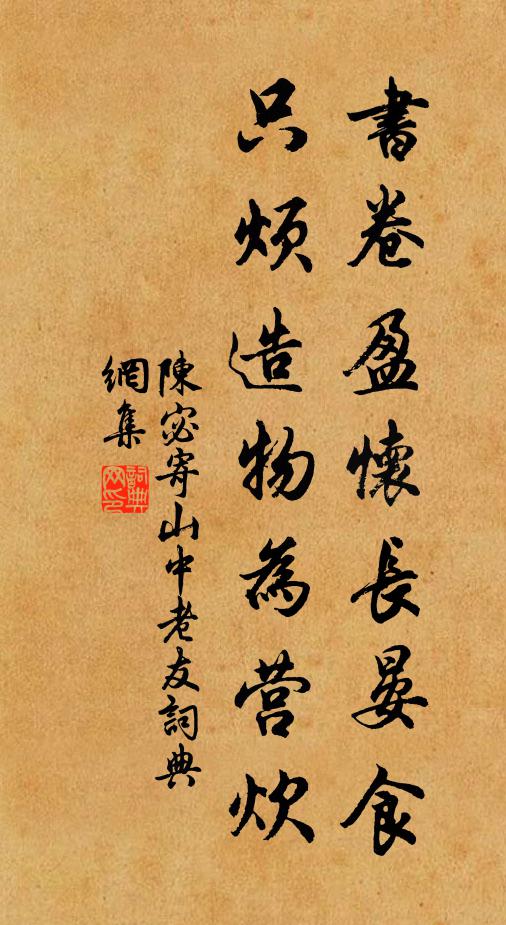 書卷盈懷長晏食
只煩造物為营炊
陳宓寄山中老友詞典
網集
詞典网印